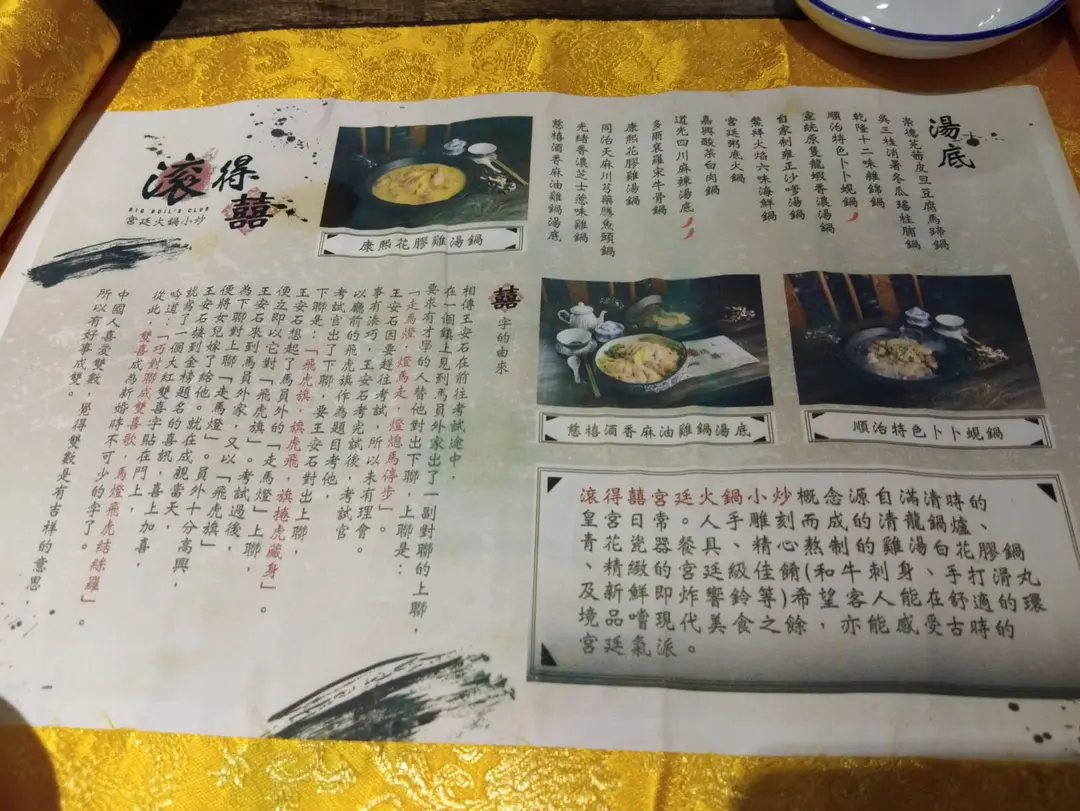 湯底
崇德芫荽皮旦豆腐馬蹄鍋
吳三桂消暑冬瓜瑤柱脯鍋
乾隆十二味雜錦鍋
順治特色卜卜蜆鍋
宣統原隻龍蝦香濃湯鍋
自家制雍正沙嗲湯鍋
鰲拜火焰六味海鮮鍋
宮廷粥底火鍋
嘉興酸菜白肉鍋
道光四川麻辣湯底
多爾袞羅宋牛骨鍋
康熙花膠雞湯鍋
同治天麻川芎藥膳魚頭鍋
光緒香濃芝士惹味雞鍋
慈禧酒香麻油雞鍋湯底
康熙花膠雞湯鍋
滾得囍
BIG BOIL'S CLUB
宮廷火鍋小炒
慈禧酒香麻油雞鍋湯底
順治特色卜卜蜆鍋
滾得囍宮廷火鍋小炒概念源自滿清時的
皇宮日常。人手雕刻而成的清龍鍋爐、
青花瓷器餐具、精心熬制的雞湯白花膠鍋
、精緻的宮廷級佳餚(和牛刺身、手打滑丸
及新鮮即炸響鈴等)希望客人能在舒適的環
境品嚐現代美食之餘，亦能感受古時的
宮廷氣派。
囍字的由來
相傳王安石在前往考試途中，
在一個鎮上見到馬員外家出了一副對聯的上聯，
要求有才學的人替他對出下聯，上聯是：
「走馬燈，燈馬走，燈熄馬停步」。
王安石因要趕往考試，所以未有理會。
事有湊巧，王安石考完試後，考試官
以廳前的飛虎旗作為題目考他，
考試官出了下聯，要王安石對出上聯，
下聯是：「飛虎旗，旗虎飛，旗捲虎藏身」。
王安石想起了馬員外的「走馬燈」上聯，
便立即以它對「飛虎旗」。考試過後，
王安石來到馬員外家，又以「飛虎旗」
為下聯對上聯「走馬燈」。員外十分高興，
便將女兒嫁了給他。就在成親當天，
王安石接到金榜題名的喜訊，喜上加喜，
就寫了一個大紅雙喜字貼在門上，
吟道：「巧對聯成雙喜歌，馬燈飛虎結絲羅」。
從此，雙喜成為新婚時不可少的字了。
中國人喜愛雙數，覺得雙數是有吉祥的意思，
所以有好事成雙。